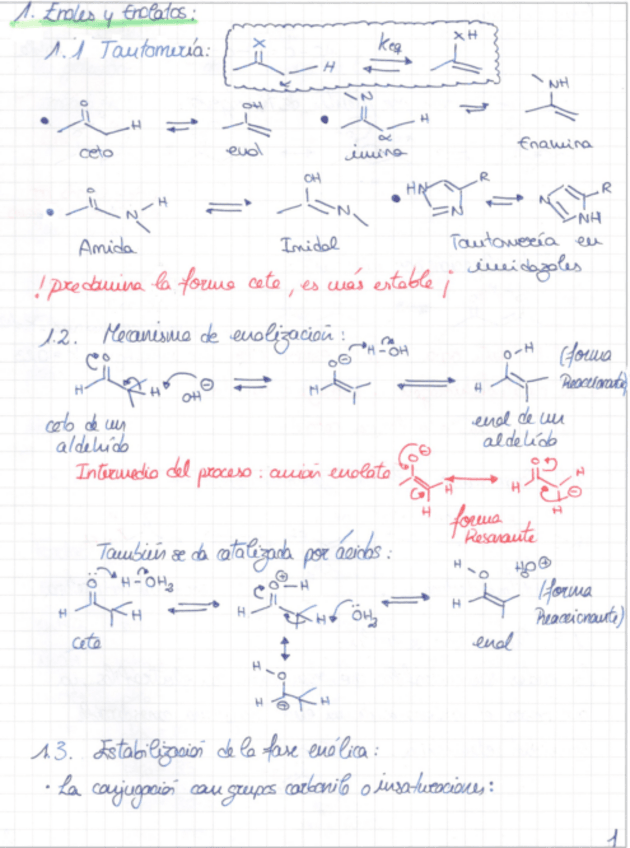 1. Enoles y Enolatos:
1.1 Tautomería:
X H Keq XH
α
O H OH N H NH
ceto enol imina α Enamina
O H N OH N HN N R N NH R
Amida Imidol Tautomería en
imidazoles
! predomina la forma ceto, es más estable ¡
1.2. Mecanismo de enolización:
O H H OH⊖ O⊖ H-OH H O-H H (forma
Reaccionante)
ceto de un enol de un
aldehído aldehído
Intermedio del proceso: anión enolato O⊖ H H O H H ⊖ H
forma
Resonante
También se da catalizada por ácidos:
O H-OH2 H H O⊕-H H H OH2 H O H H3O⊕ (forma
Reaccionante)
ceto enol
H O H ⊕ H
1.3. Estabilización de la fase enólica:
· La conjugación con grupos carbonilo o insaturaciones:
1